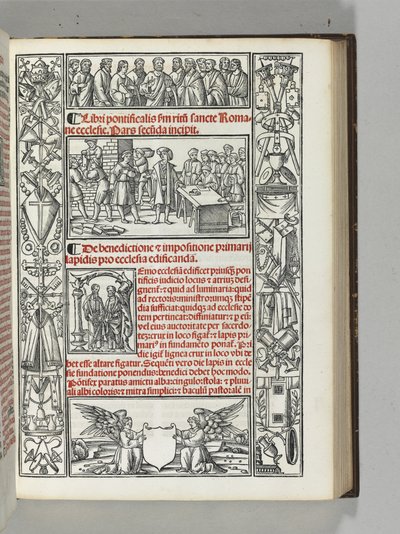 ¶Libri pontificalis s̄m ritū sancte Roma-
ne ecclesie. Pars secūda incipit.
¶De benedictione ⁊ impositione primarij
lapidis pro ecclesia edificanda.
Nemo ecclesiā edificet priusq̄ pon
tificis iudicio locus ⁊ atriū desi
gnent̄: ⁊ quid ad luminaria: quid
ad rectoris: ministrorumqꝫ stipē
dia sufficiat: quidqꝫ ad ecclesie do
tem pertineat: diffiniatur: ⁊ ꝑ eū
vel eius auctoritate per sacerdo-
tē: crux in loco figat̄: ⁊ lapis pri
marꝰ in fundamēto ponat̄. Pri
die igit̄ lignea crux in loco vbi de
bet esse altare figatur. Sequēti vero die lapis in eccle
sie fundatione ponendus: benedici debet hoc modo.
Pōtifex paratus amictu alba: cingulo: stola: ⁊ pluui
ali albi coloris: ⁊ mitra simplici: ⁊ baculū pastoralē in